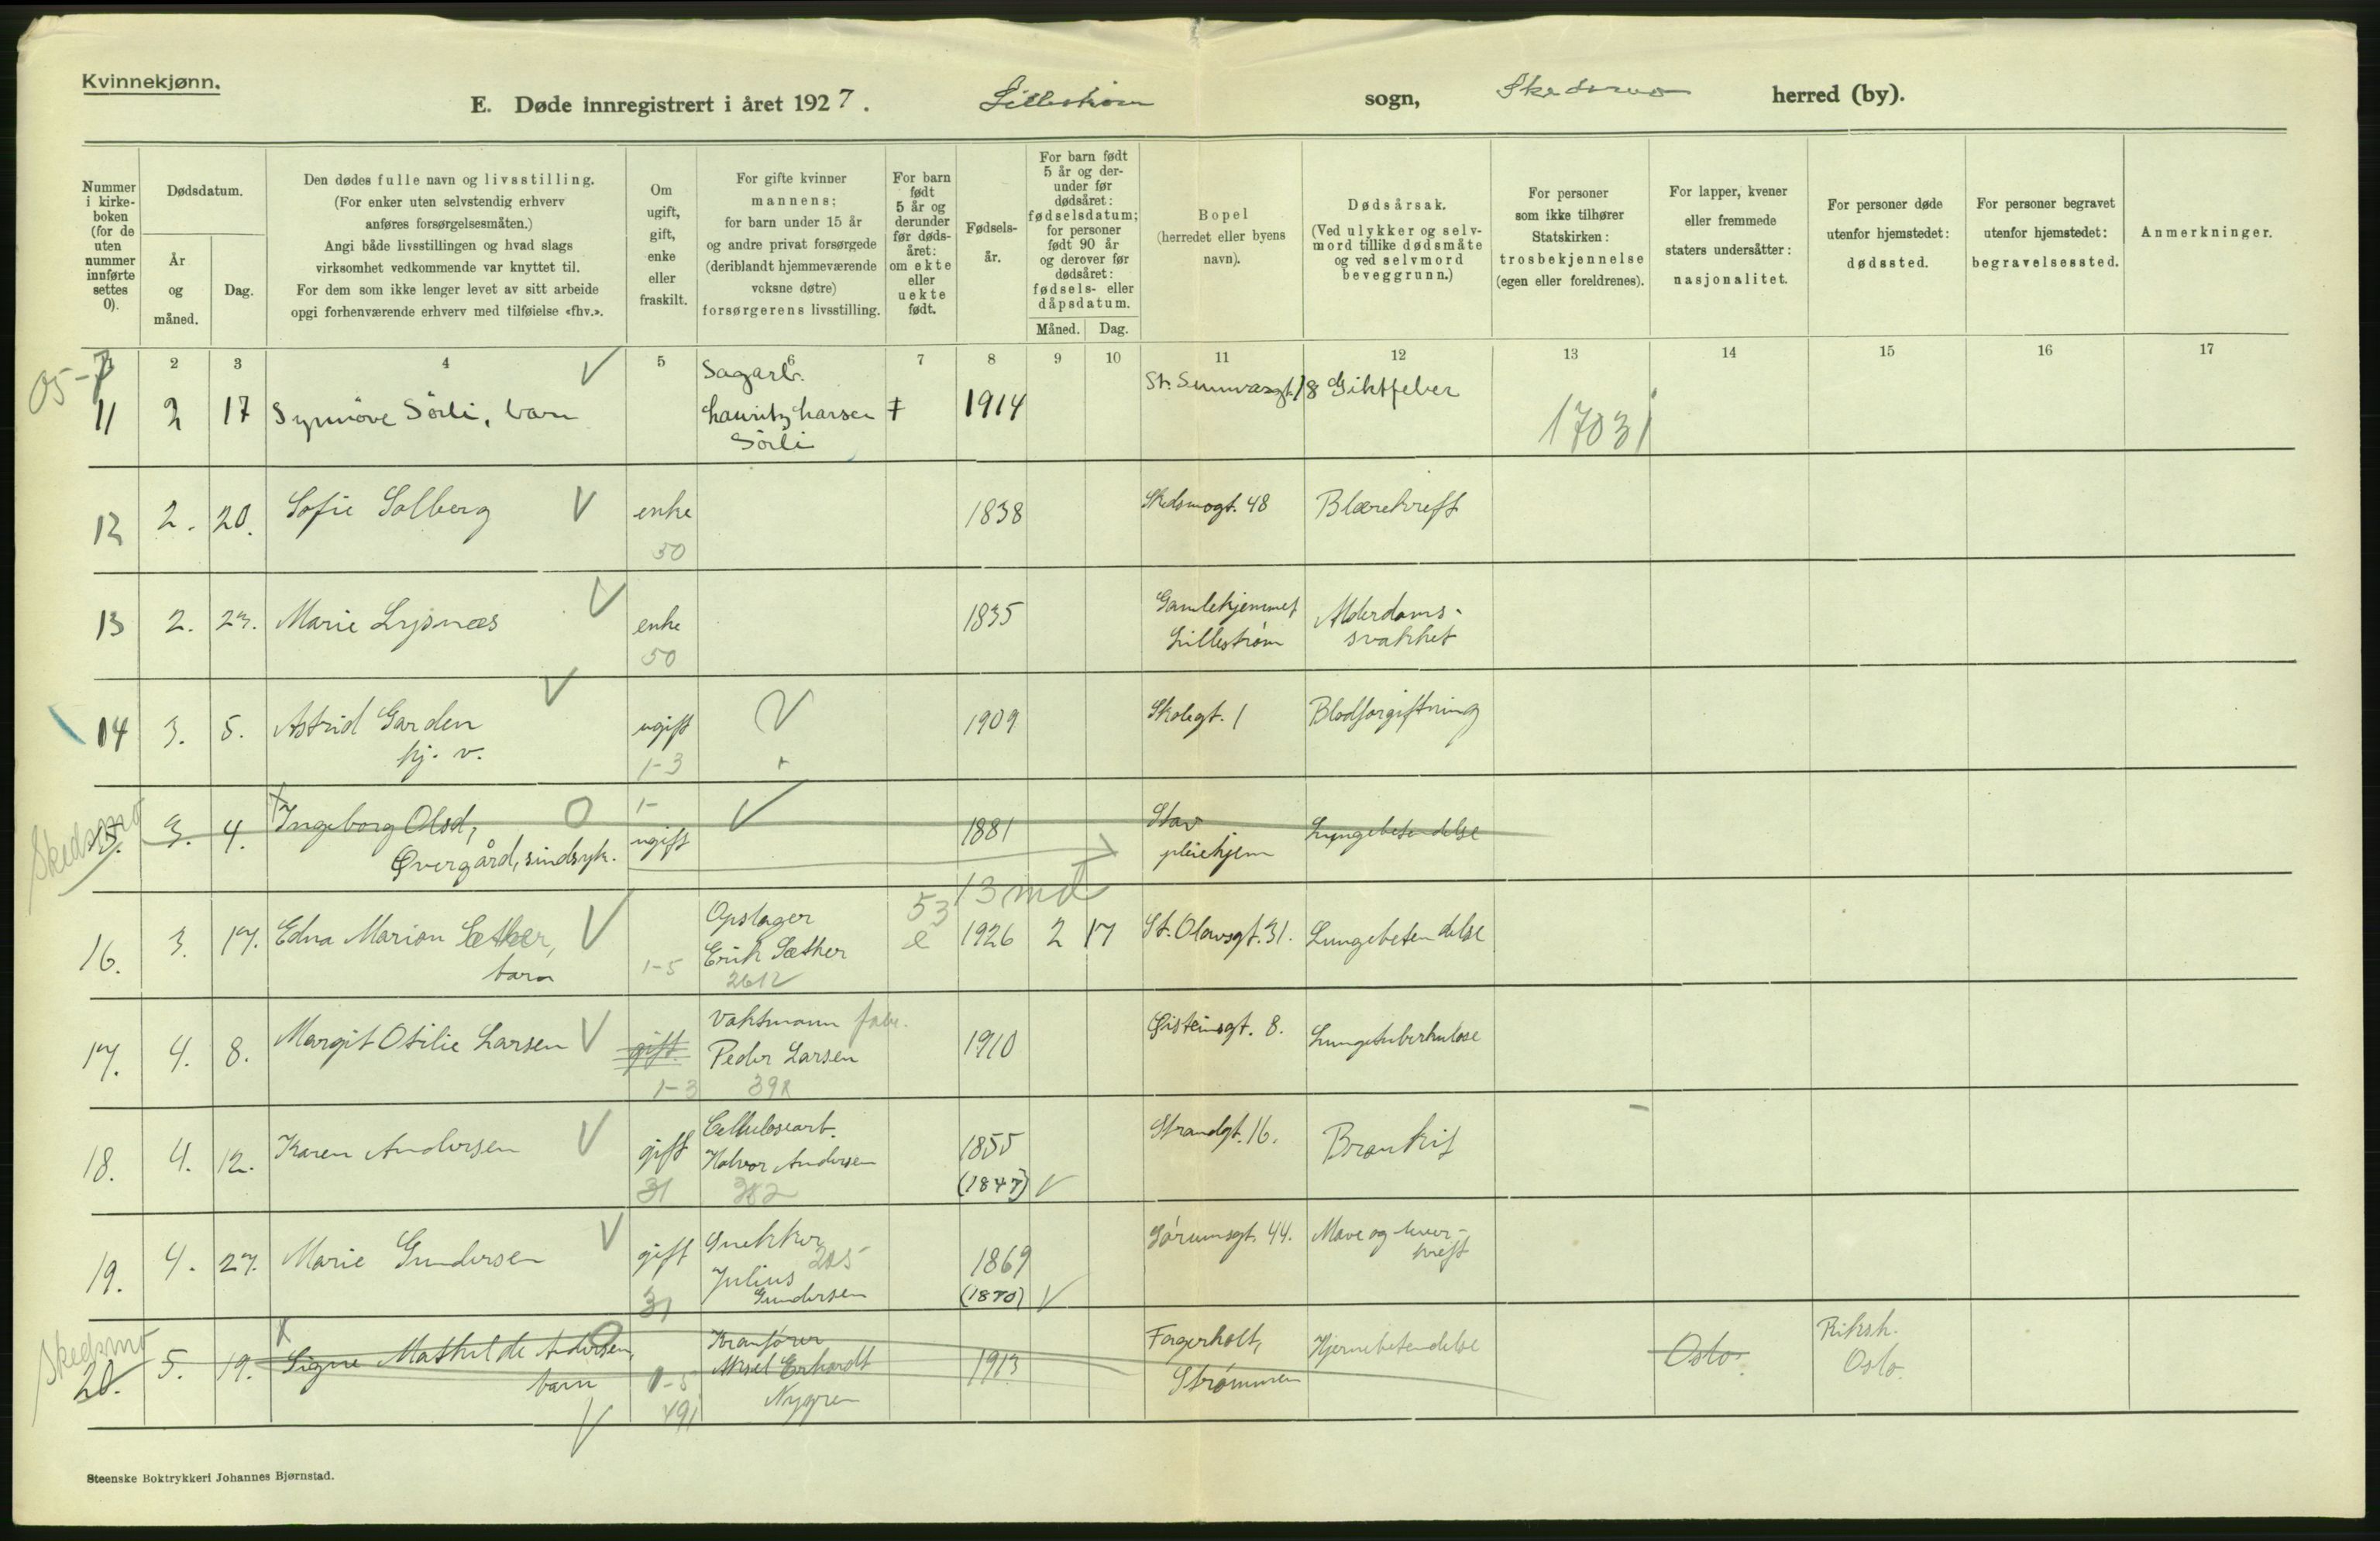 Kvinnekjønn.
E. Døde innregistrert i året 1927. Lillestrøm sogn, Skedsmo herred (by).
Nummer i kirke- boken (for de uten nummer innførte settes 0).
Dødsdatum.
År og måned.
Dag.
Den dødes fulle navn og livsstilling.
(For enker uten selvstendig erhverv
anføres forsørgelsesmåten.)
Angi både livsstillingen og hvad slags
virksomhet vedkommende var knyttet til.
For dem som ikke lenger levet av sitt arbeide
opgi forhenværende erhverv med tilføielse «fhv.».
Om ugift, gift, enke eller fraskilt.
For gifte kvinner
mannens;
for barn under 15 år
og andre privat forsørgede
(deriblandt hjemmeværende
voksne døtre)
forsørgerens livsstilling.
For barn født 5 år og derunder før døds- året: om ekte eller uekte født.
Fødsels- år.
For barn født
5 år og der-
under før
dødsåret:
fødselsdatum;
for personer
født 90 år
og derover før
dødsåret:
fødsels- eller
dåpsdatum.
Måned. Dag.
Bopel
(herredet eller byens
navn).
Dødsårsak.
(Ved ulykker og selv-
mord tillike dødsmåte
og ved selvmord
beveggrunn.)
For personer
som ikke tilhører
Statskirken:
trosbekjennelse
(egen eller foreldrenes).
For lapper, kvener
eller fremmede
staters undersåtter:
nasjonalitet.
For personer døde
utenfor hjemstedet:
dødssted.
For personer begravet
utenfor hjemstedet:
begravelsessted.
Anmerkninger.
2 3 4 5 6 7 8 9 10 11 12 13 14 15 16 17
05-7
11 2 17 Synnöve Sörli, barn
Sagarb.
Lauritz Larsen
Sörli
1914
18 Giktfeber
17031
12 2. 20. Sofie Solberg enke 1838 Skedsmogt. 48 Blærekreft
50
13 2. 23. Marie Lysnæs enke 1835
Gamlehjemmet
Lillestrøm
Alderdoms-
svakhet
50
14 3. 5. Astrid Garden
hj. v.
ugift 1909 Skolegt. 1 Blodforgiftning
1-3
Skedsmo
15. 3. 4. Ingeborg Olsd,
Øvergård, sindsyk.
1-
ugift 1881
Stav
pleiehjem
Lungebetendelse
13 md
16. 3. 17. Edna Marion Sæther,
barn
1-5
Opslager
Erik Sæther
2612
53
e 1926 2 17 St. Olavsgt. 31. Lungebetendelse
17. 4. 8. Margit Otilie Larsen gift
1-3
Vaktmann fabr.
Peder Larsen
392
1910 Øisteinsgt. 8. Lungetuberkulose
18. 4. 12. Karen Andersen gift
31
Celluloseart.
Halvor Andersen
382
1855
(1847)
Strandgt. 16. Bronkit
19. 4. 27. Marie Gundersen gift
31
Snekker
205
Julius
Gundersen
1869
(1870)
Sørumsgt. 44. Mave og lever-
kreft
Skedsmo
20. 5. 19. Signe Mathilde Andersen,
barn
491
Kranfører
Aksel Erhardt
Nygren
1913
Fagerholt,
Strømmen
Hjernebetendelse
Oslo.
Riksh.
Oslo.
Steenske Boktrykkeri Johannes Bjørnstad.